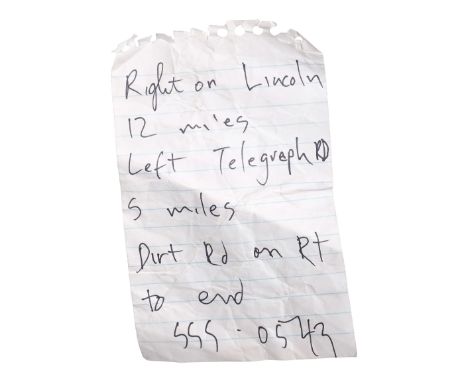 Right on Lincoln
12 miles
Left Telegraph RD
5 miles
Dirt Rd on Rt
to end
555-0543